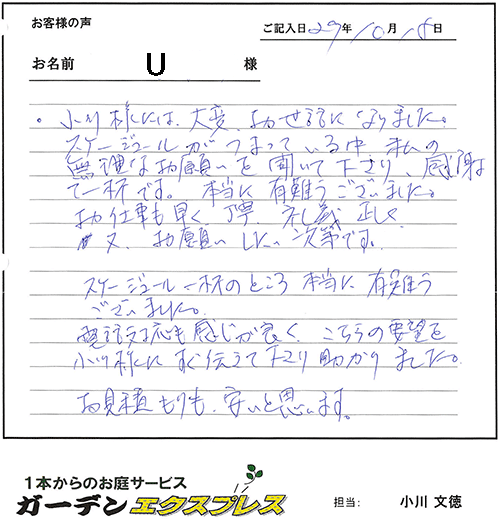 お客様の声
ご記入日29年10月18日
お名前 U 様
・小川様には、大変、お世話になりました。
スケージュールがつまっている中、私の
無理なお願いを聞いて下さり、感謝
で一杯です。本当に有難うございました。
お仕事も早く、丁寧、礼義正しく
又、お願いしたい次第です。
スケージュール一杯のところ本当に有難う
ございました。
電話対応も感じが良く、こちらの要望を
小川様にすぐ伝えて下さり助かりました。
お見積もりも、安いと思います。
1本からのお庭サービス
ガーデンエクスプレス
担当: 小川 文徳